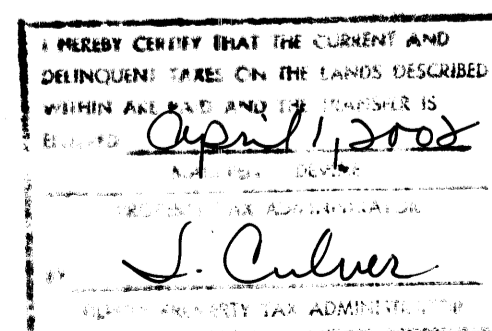 I HEREBY CERTIFY THAT THE CURRENT AND
DELINQUENT TAXES ON THE LANDS DESCRIBED
WITHIN ARE PAID AND THE TRANSFER IS
ENTERED April 1, 2002
PROPERTY TAX ADMINISTRATOR
BY J. Culver
DEPUTY PROPERTY TAX ADMINISTRATOR